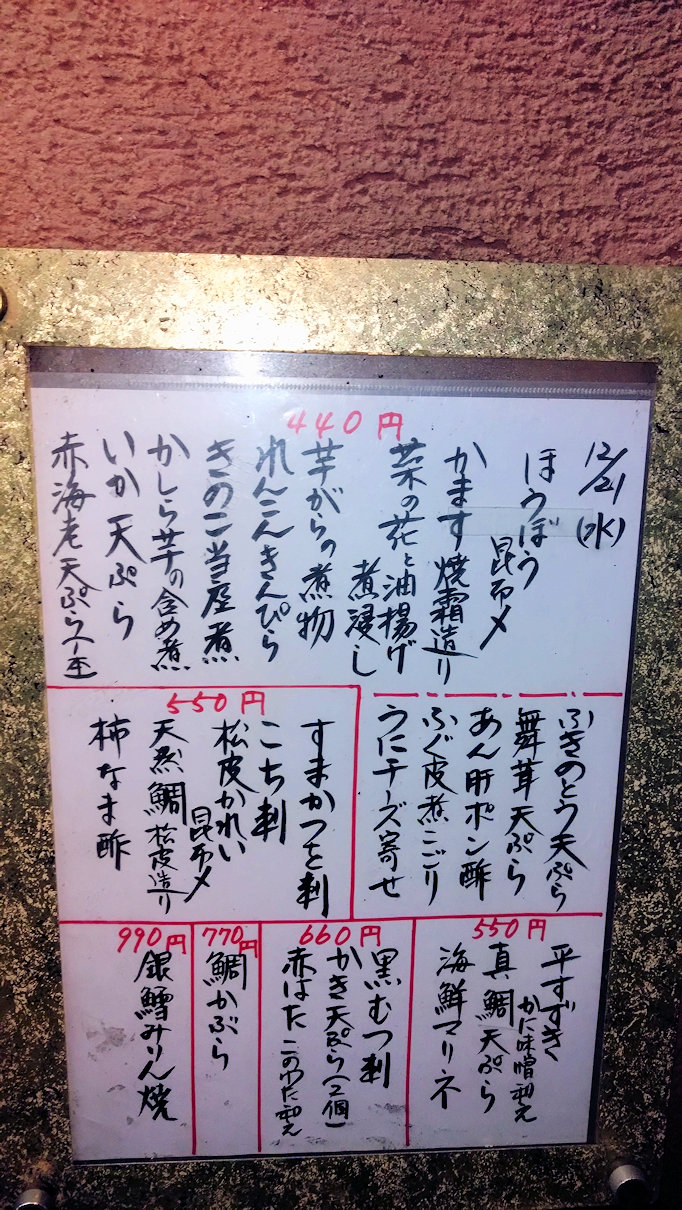 12/21(水)
440円
ほうぼう
昆布〆
かます焼霜造り
菜の花と油揚げ
煮浸し
芋がらの煮物
れんこんきんぴら
きのこ当座煮
かしら芋の含め煮
いか天ぷら
赤海老天ぷら
ふきのとう天ぷら
舞茸天ぷら
あん肝ポン酢
ふぐ皮煮こごり
うにチーズ寄せ
550円
すまかつを刺
こち刺
松皮かれい
昆布〆
天然鯛松皮造り
柿なます酢
550円
平すずき
かに味噌和え
真鯛天ぷら
海鮮マリネ
660円
黒むつ刺
かき天ぷら(2個)
赤はたこのわた和え
770円
鯛かぶら
990円
銀鱈みりん焼